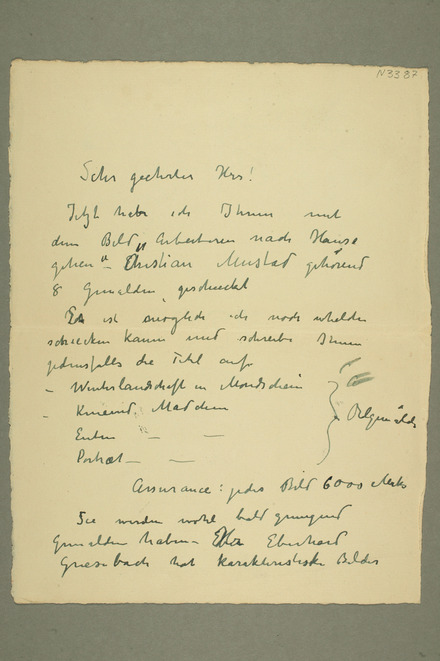 N3387
Sehr geehrter Herr!
Jetzt habe ich Ihnen mit
dem Bild „Arbeiteren nach Hause
gehen" – Christian Mustad gehörend
8 Gemälden geschieckt
Es ist moglich ich noch
schiecken kann und schreibe Ihnen
jedenfalls die Titel auf
– Winterlandschaft in Mondschein
– Knieend. Mädchen
Enten — —
Portræt — —
Oelgemälde
Assurance: jedes Bild 6000 Marks
Sie werden wohl bald genugend
Gemälden haben – Eberhard
Griesebach hat karakteristiske Bilder